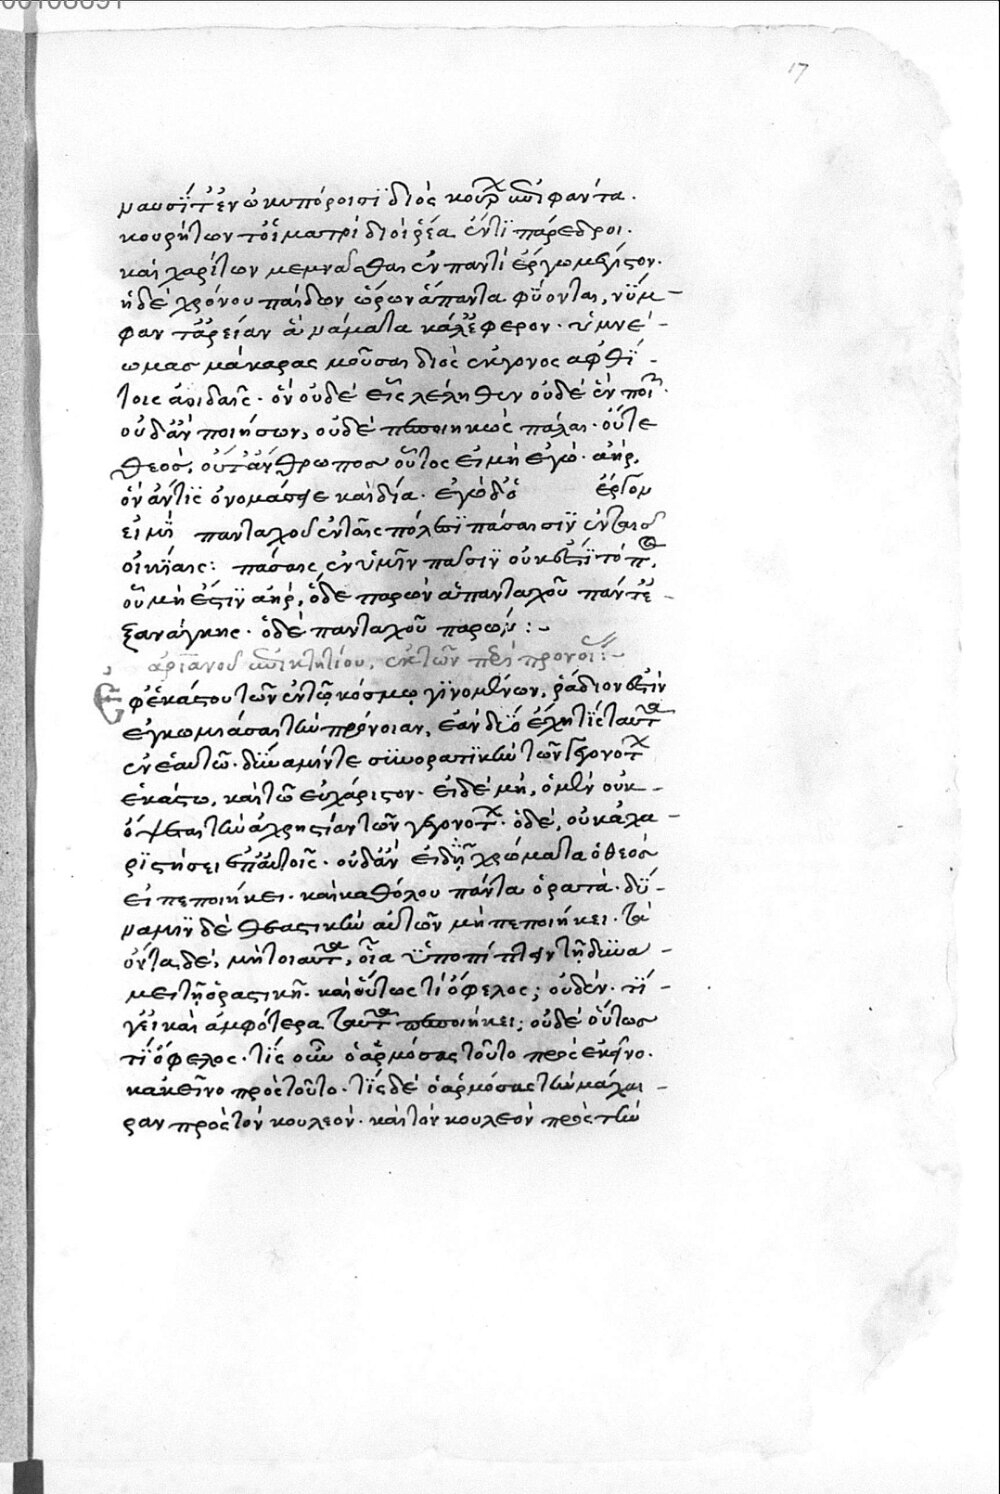 17
ναυσίτ' ἐν ὠκυπόροισι διὸς κούρων ἐπιφαντα.
κουρήτων τοἱ ματρὶ διοὶ ῥέα ἐντὶ πάρεδροι.
καὶ χαρίτων μεμνᾶσθαι ἐν παντὶ ἔργω μέγιστον.
ἠδὲ χρόνου παίδων ὡρῶν ἅπαντα φύονται, νύμ-
φαν τ' ὀρείαν νάματα κάλ' ἔφερον. ὑμνέ-
ωμας μάκαρας μοῦσαι διὸς ἔκγονος ἀφθί-
τοις ἀοιδαῖς. ὃν οὐδὲ εἷς λέληθεν οὐδὲ ἓν ποιῶν.
οὐδ' ἂν ποιήσων, οὐδὲ πεποιηκὼς πάλαι. οὔτε
θεοσ, οὔτ' ἄνθρωπος οὗτος εἰμὴ ἐγὼ. ἀὴρ,
ὃν ἄντις ὀνομάσειε καὶ δία. ἐγὼ δ' ὃ ἔργον
εἰμὴ πανταχοῦ ἐνταῖς πόλεσι πάσαισιν ἐν ταῖσ
οἰκίαις: πάσαις ἐν ὑμῖν πᾶσιν οὐκ ἔστι τόπος,
οὗ μὴ ἔστιν ἀὴρ, ὁδὲ παρὼν ἁπανταχοῦ πάντ' ἐ-
ξανάγκης. ὁδὲ πανταχοῦ παρὼν :-
ἀρριανοῦ ἐπικτητίου, ἐκ τῶν περὶ προνοίας
Ἐφ' ἑκάστου τῶν ἐν τῷ κόσμῳ γινομένων, ῥάδιον ἐστὶν
ἐγκωμιάσαι τὴν πρόνοιαν, ἐὰν δύο ἔχῃ τὶς ταῦτα
ἐν ἑαυτῶ. δύναμίν τε συνορατικὴν τῶν γεγονότων
ἑκάστω, καὶ τῶ εὐχάριστον. εἰ δὲ μὴ, ὁ μὲν οὐκ -
ὄψεται τὴν ἀχρηστίαν τῶν γεγονότων. ὁ δὲ, οὐκ ἀχα-
ριστήσει ἐπ' αὐτοῖς. οὐδ' ἂν εἰδῇ χρώματα ὁ θεὸς
εἰ πεποιήκει. καὶ καθόλου πάντα ὁρατά. δύ-
ναμιν δὲ θεατικὴν αὐτῶν μὴ πεποιήκει. τὰ
ὄντα δὲ, μὴ τοιαῦτα, οἷα ὑποπίπτειν τῇ δυνά -
μει τῇ ὁρατικῇ. καὶ οὕτως τί ὄφελος; οὐδέν. τί -
γ' εἰ καὶ ἀμφότερα ταῦτα πεποιήκει; οὐδὲ οὕτως
τί ὄφελος. τίς οὖν ὁ ἁρμόσας τοῦτο πρὸς ἐκεῖνο.
κἀκεῖνο πρὸς τοῦτο. τίς δὲ ὁ ἁρμόσας τὴν μάχαι -
ραν πρὸς τὸν κουλεὸν. καὶ τὸν κουλεὸν πρὸς τὴν